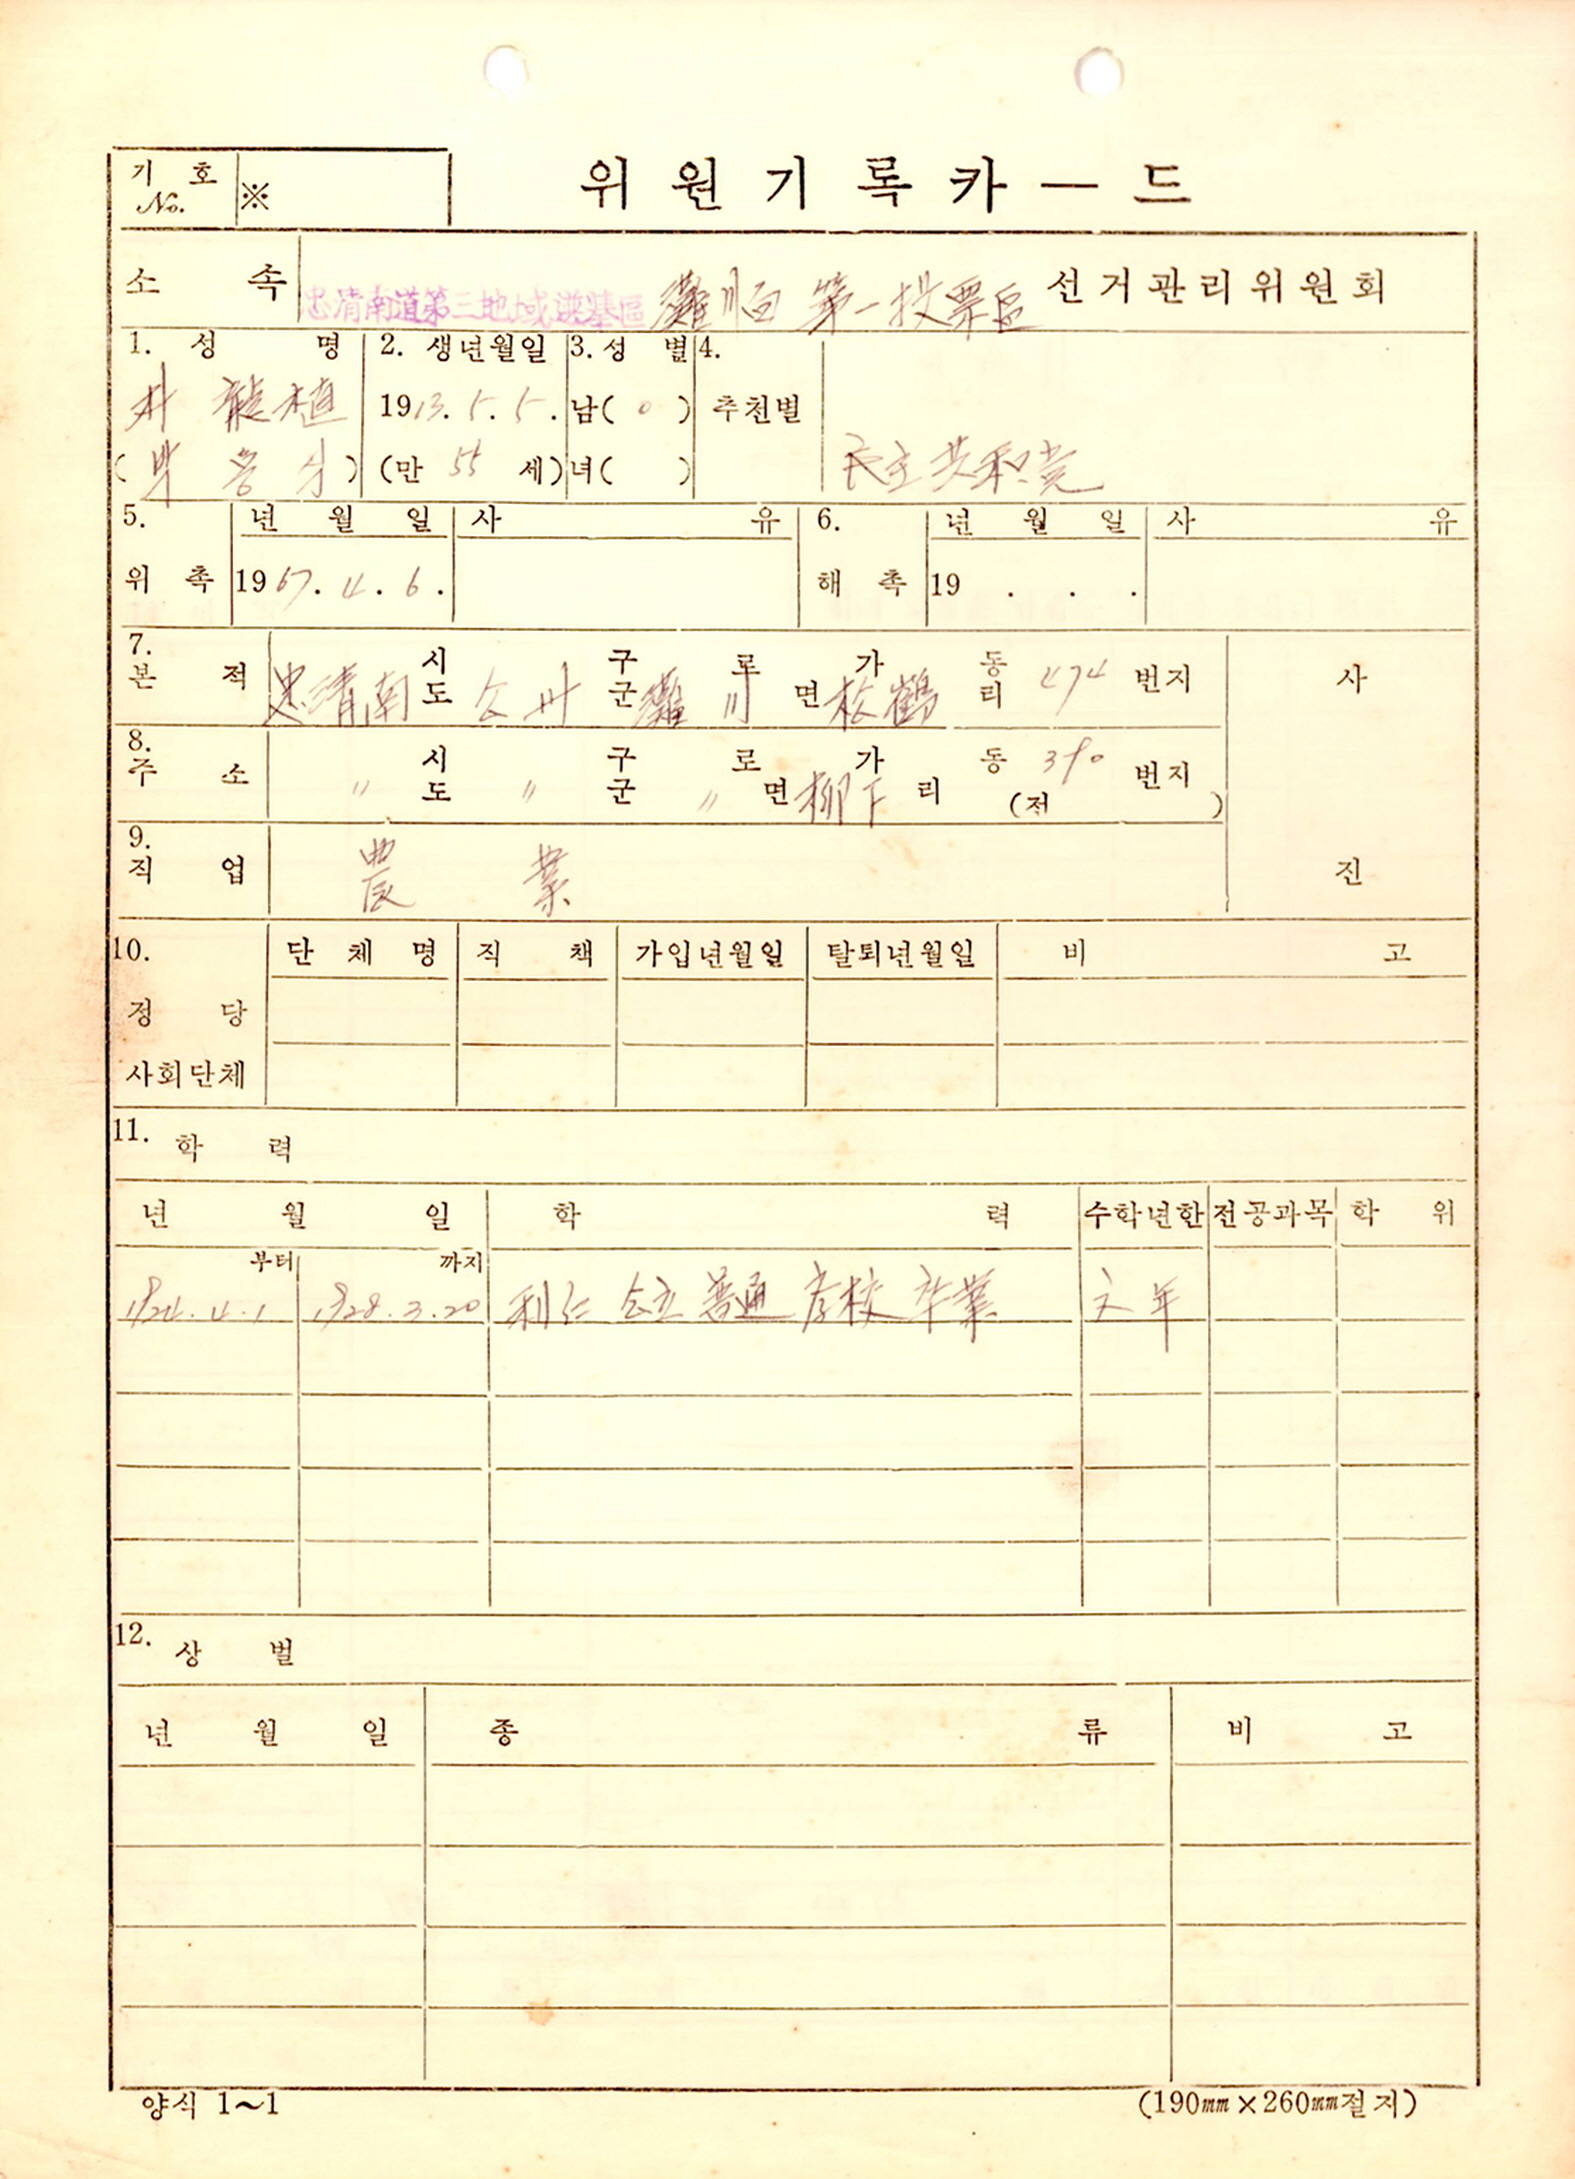 기호 No. ※
위원기록카—드
소속 忠清南道第三地域選挙區 灘川面 第一投票區 선거관리위원회
1. 성명 2. 생년월일 3. 성별 4.
朴 龍植 1913. 5. 5. 남( o ) 추천별
(박 용 식) (만 55 세) 녀( ) 民主共和党
5. 년월일 사유 6. 년월일 사유
위촉 1967. 4. 6. 해촉 19 . . .
7. 본적 忠清南 시도 公州 구군 灘川 로 면 松鶴 가 동리 474 번지 사
8. 주소 〃 시도 〃 구군 〃 로 면 柳下 가 리 동 390 번지
(전 )
9. 직업 農業 진
10. 단체명 직책 가입년월일 탈퇴년월일 비고
정당
사회단체
11. 학력
년월일 학력 수학년한 전공과목 학위
부터 까지
1924. 4. 1 1928. 3. 20 利仁公立普通学校卒業 年
12. 상벌
년월일 종류 비고
양식 1~1 (190mm×260mm절지)